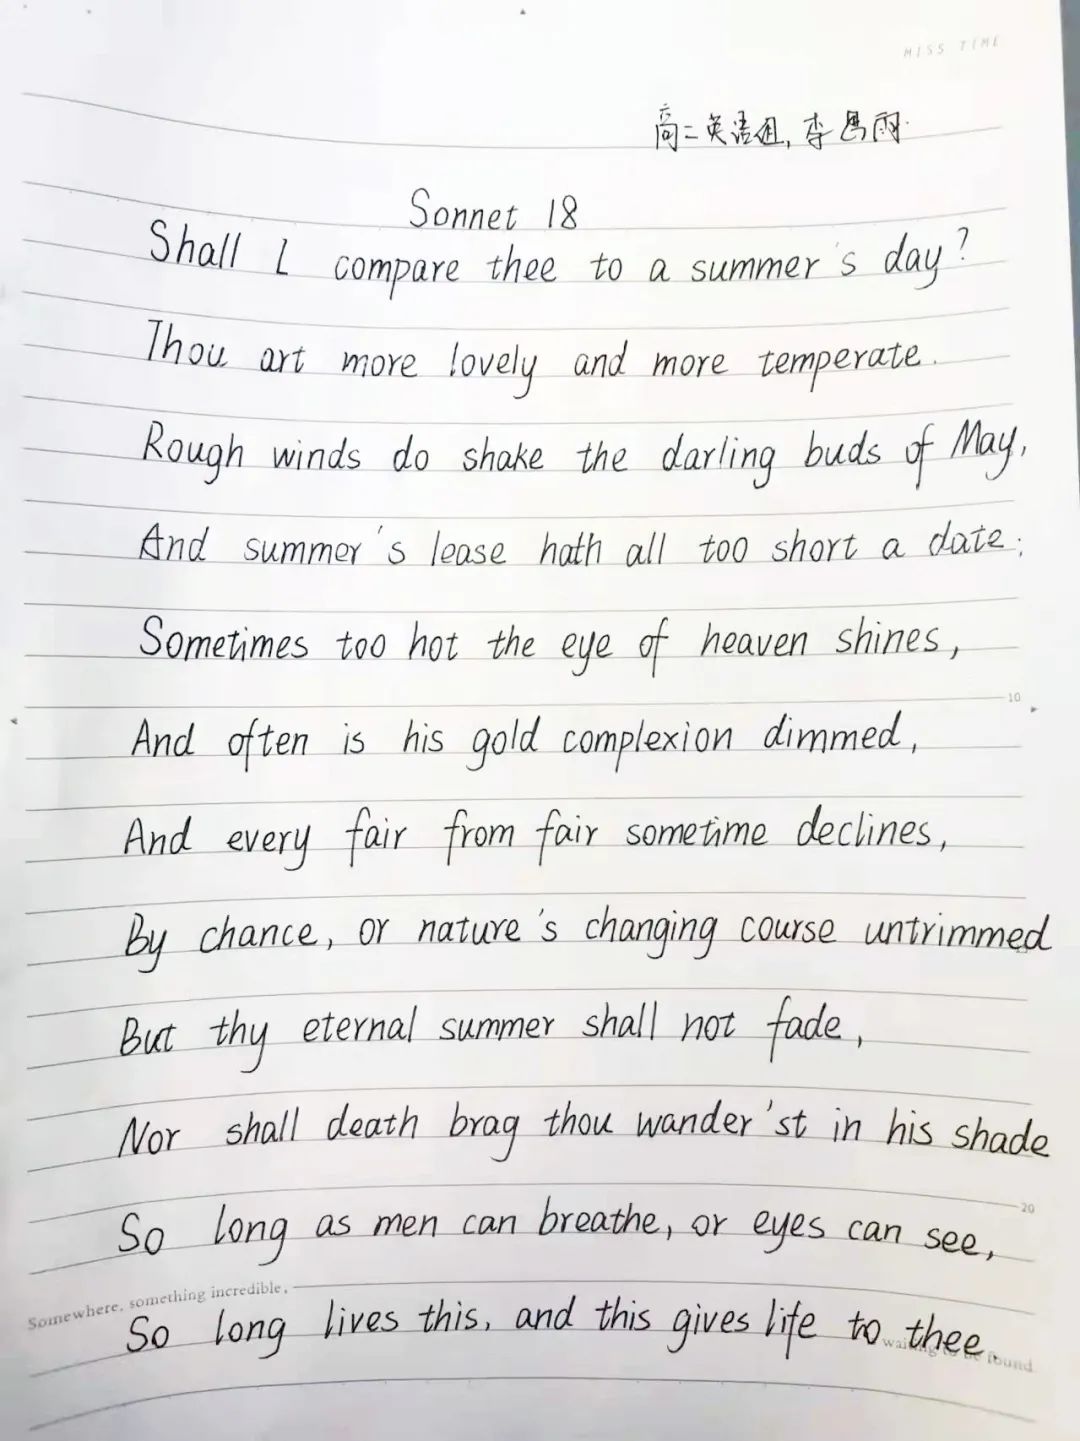 MISS TIME
高二英语组, 李昌雨
Sonnet 18
Shall I compare thee to a summer's day?
Thou art more lovely and more temperate.
Rough winds do shake the darling buds of May,
And summer's lease hath all too short a date;
Sometimes too hot the eye of heaven shines,
10
And often is his gold complexion dimmed,
And every fair from fair sometime declines,
By chance, or nature's changing course untrimmed
But thy eternal summer shall not fade,
Nor shall death brag thou wander'st in his shade
20
So long as men can breathe, or eyes can see,
Somewhere, something incredible,
So long lives this, and this gives life to thee.
waiting to be found